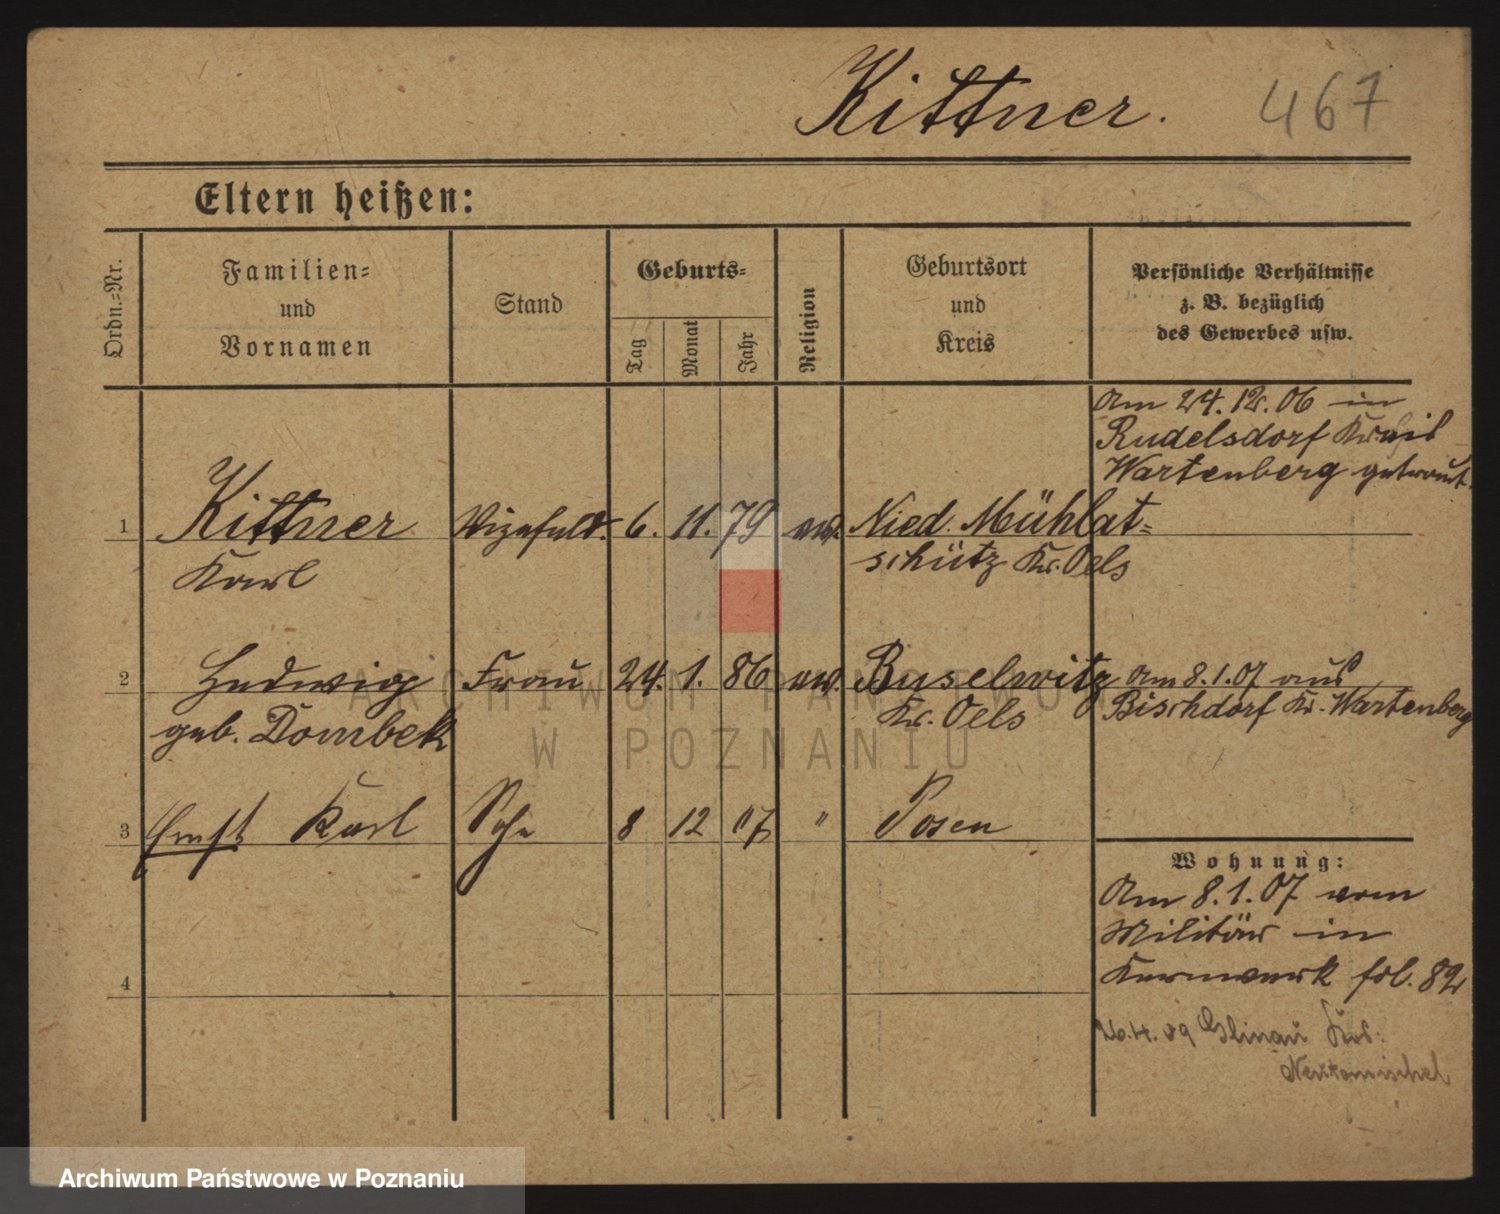 Kittner. 467
Eltern heißen:
Ordn.-Nr.
Familien-
und
Vornamen
Stand
Geburts-
Tag
Monat
Jahr
Religion
Geburtsort
und
Kreis
Persönliche Verhältnisse
z. B. bezüglich
des Gewerbes usw.
Am 24.12.06 in
Rudelsdorf Kreis
Wartenberg getraut.
1 Kittner Vizefeldw. 6. 11. 79 ev. Nied. Mühlat-
Karl schütz Kr. Oels
2 Hedwig Frau 24. 1. 86 ev. Buselwitz Am 8.1.07 aus
geb. Dombek Kr. Oels Bischdorf Kr. Wartenberg
3 Ernst Karl Sohn 8 12 07 " Posen
Wohnung:
Am 8.1.07 vom
Militär in
Kernwerk fol. 82
4
26.4.09 Glinau Krs:
Neutomischel
ARCHIWUM PAŃSTWOWE
W POZNANIU
Archiwum Państwowe w Poznaniu